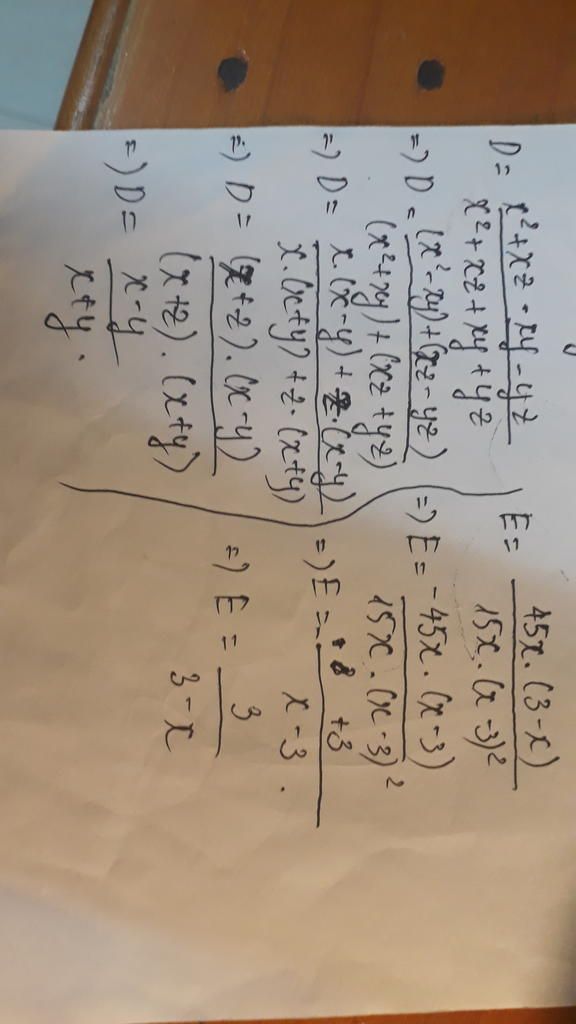 D = (x² + xz - xy - yz) / (x² + xz + xy + yz)
=) D = ((x² - xy) + (xz - yz)) / ((x² + xy) + (xz + yz))
=) D = (x.(x-y) + z.(x-y)) / (x.(x+y) + z.(x+y))
=) D = ((x+z).(x-y)) / ((x+z).(x+y))
=) D = (x-y) / (x+y) .
E = (45x.(3-x)) / (15x.(x-3)²)
=) E = (-45x.(x-3)) / (15x.(x-3)²)
=) E = +3 / (x-3) .
=) E = 3 / (3-x)